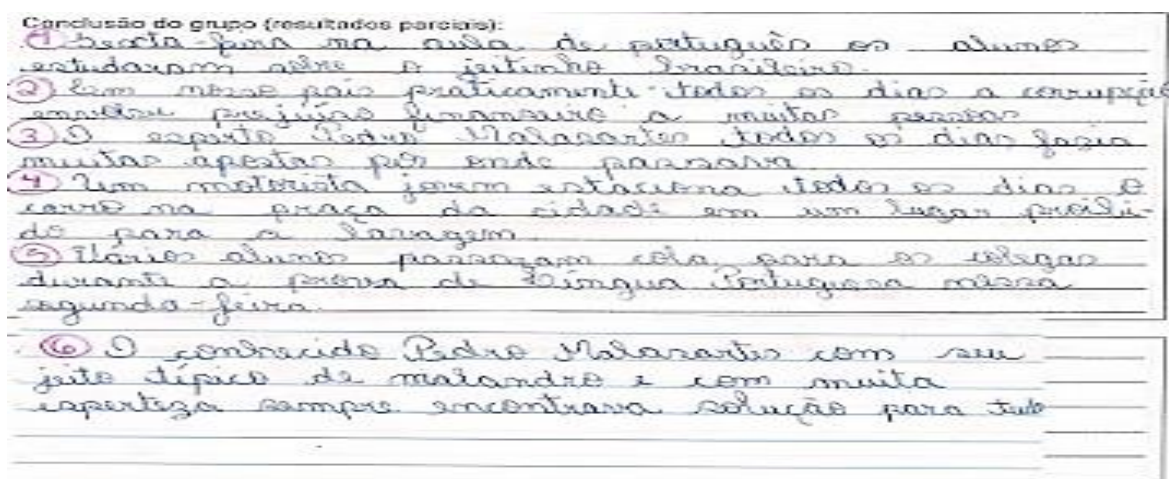 Conclusão do grupo (resultados parciais):
① Sexta-feira na aula de português os alunos
estudaram sobre o jeitinho brasileiro.
② Em nosso país praticamente todos os dias a corrupção
prejuízo financeiro a muitas pessoas
③ O esperto Pedro Malasartes todos os dias fazia
muitas apostas por onde passava
④ Um motorista jovem estaciona todos os dias o
carro na praça da cidade em um lugar proibi-
do para a lavagem.
⑤ Vários alunos passaram cola para os colegas
durante a prova de Língua Portuguesa nessa
segunda-feira.
⑥ O conhecido Pedro Malasartes com seu
jeito típico de malandro e com muita
esperteza sempre encontrava solução para tudo